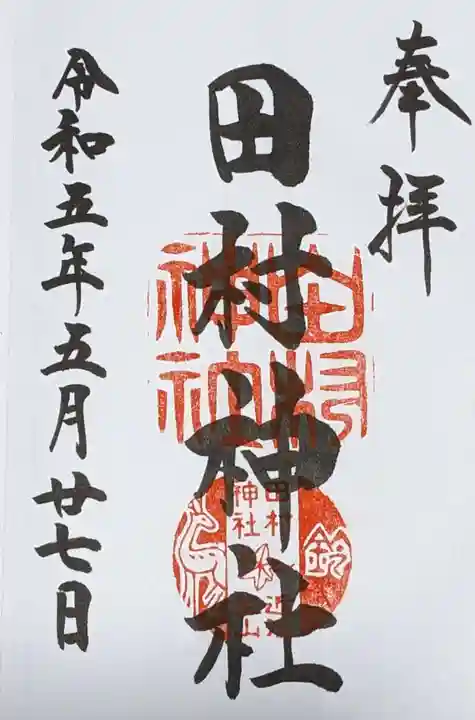 奉拝
田村神社
田村
神社
田村
神社
鈴
令和五年五月廿七日